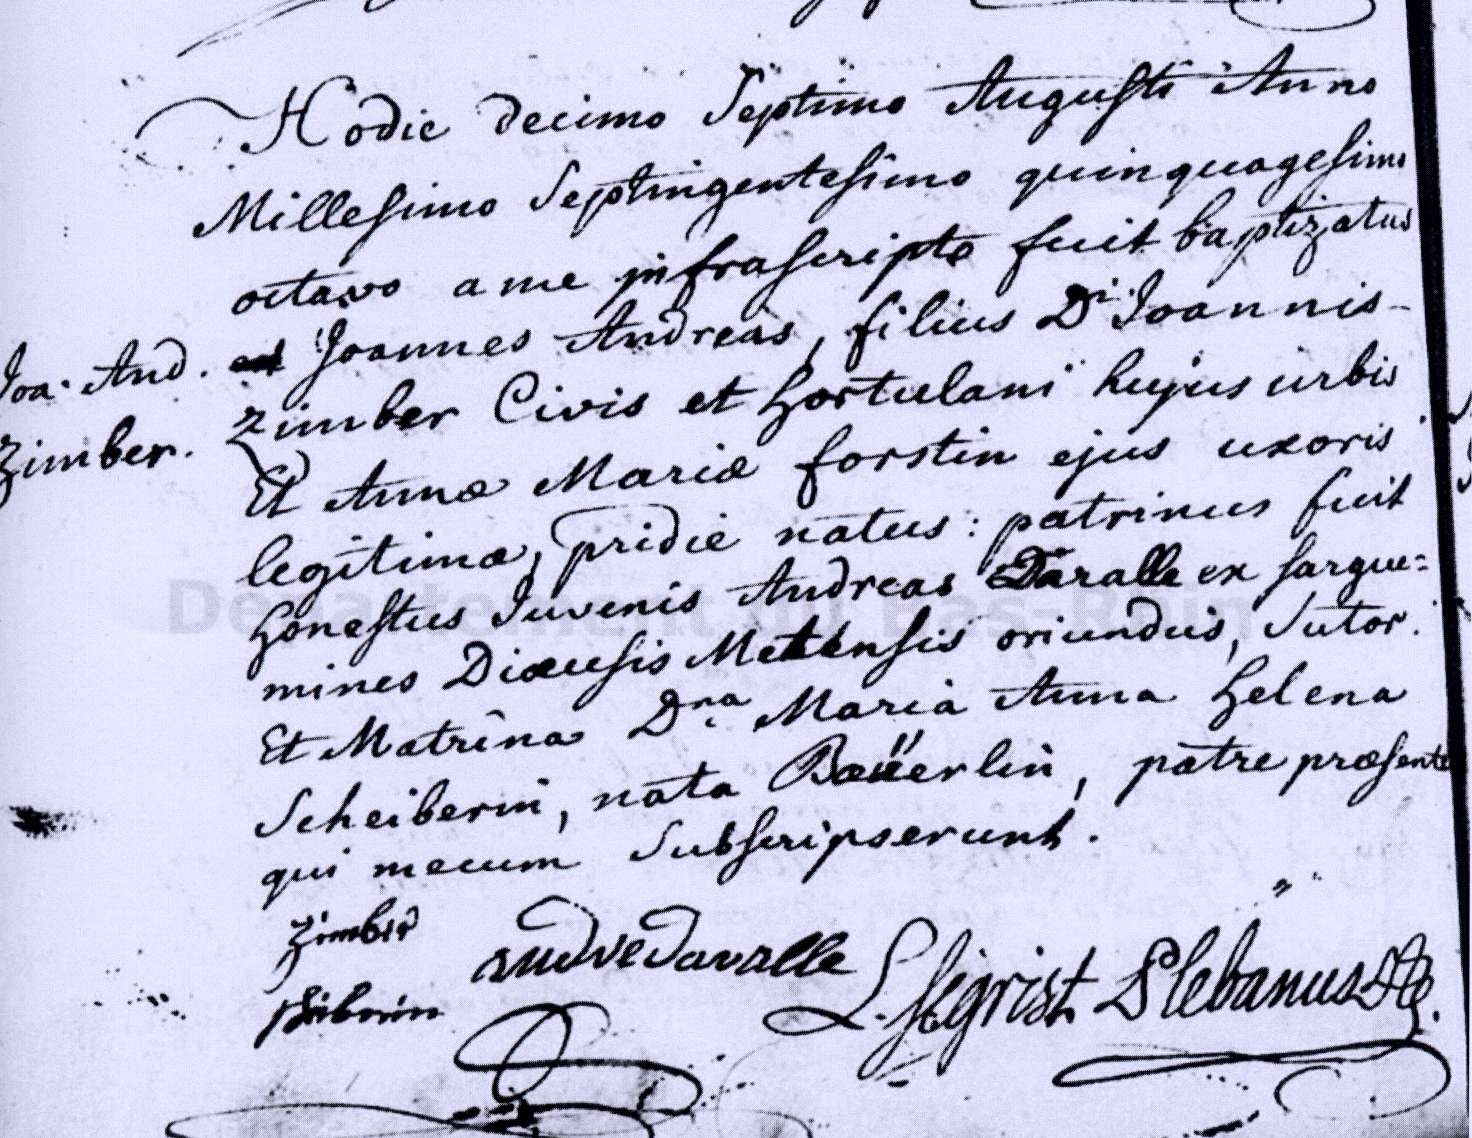 Hodie decimo Septimo Augusti Anno
Millesimo Septingentesimo quinquagesimo
octavo a me infrascripto fuit baptizatus
Joannes Andreas, filius Di Joannis
Joa. And.
Zimber Civis et hortulani hujus urbis
Zimber.
Et Annæ Mariæ forstin ejus uxoris
legitimæ, pridie natus: patrinus fuit
honestus Juvenis Andreas Daralle ex sargue=
mines Diœcesis Metensis oriundus, Sutor.
Et Matrina Dna Maria Anna Helena
Scheiberin, nata Baüerlin, patre præsente
qui mecum Subscripserunt.
Zimber
L. Segrist Plebanus
Departement du Bas-Rhin